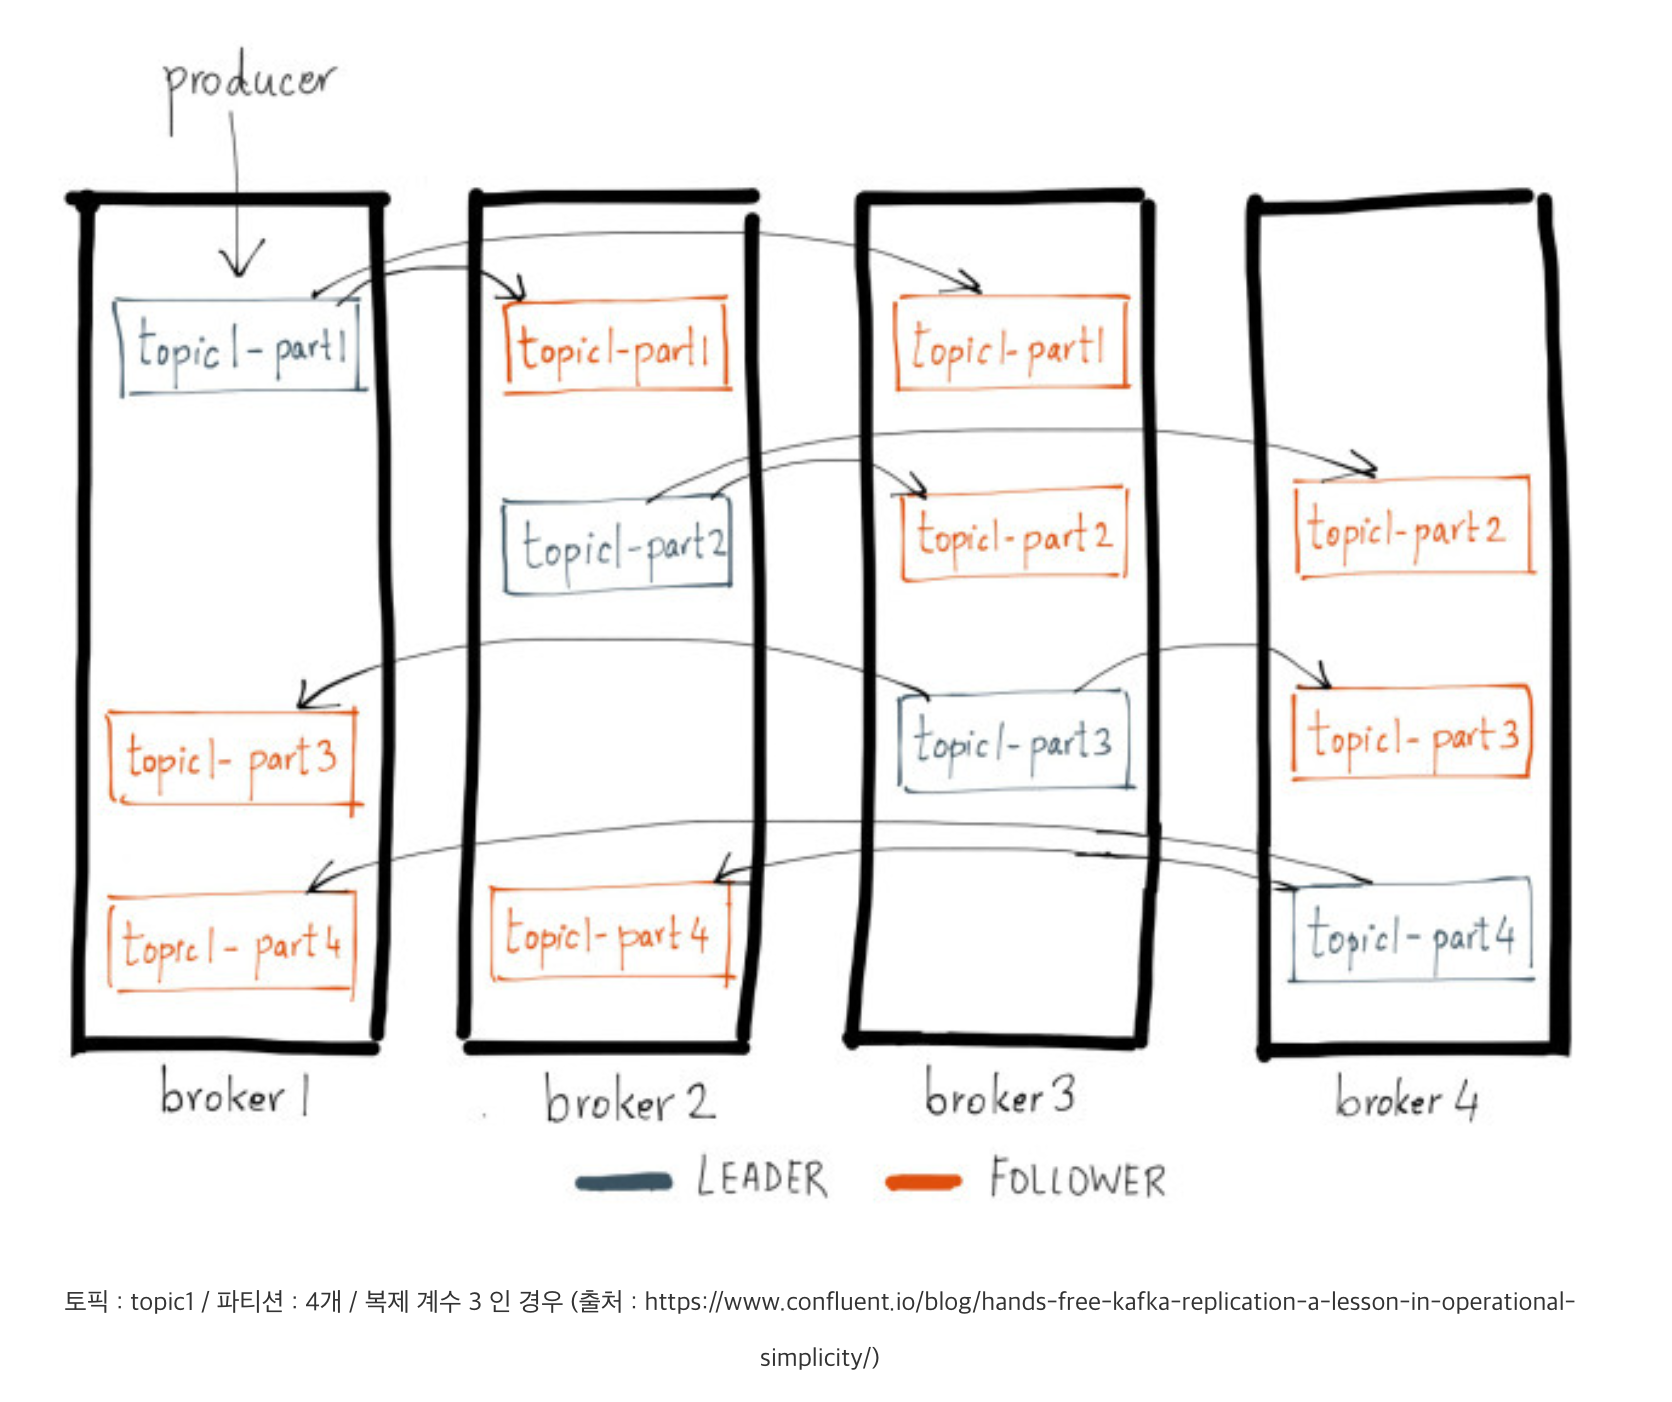 producer
topic1-part1
topic1-part1
topic1-part1
topic1-part2
topic1-part2
topic1-part2
topic1-part3
topic1-part3
topic1-part3
topic1-part4
topic1-part4
topic1-part4
broker 1
broker 2
broker 3
broker 4
LEADER
FOLLOWER
토픽 : topic1 / 파티션 : 4개 / 복제 계수 3 인 경우 (출처 : https://www.confluent.io/blog/hands-free-kafka-replication-a-lesson-in-operational-
simplicity/)